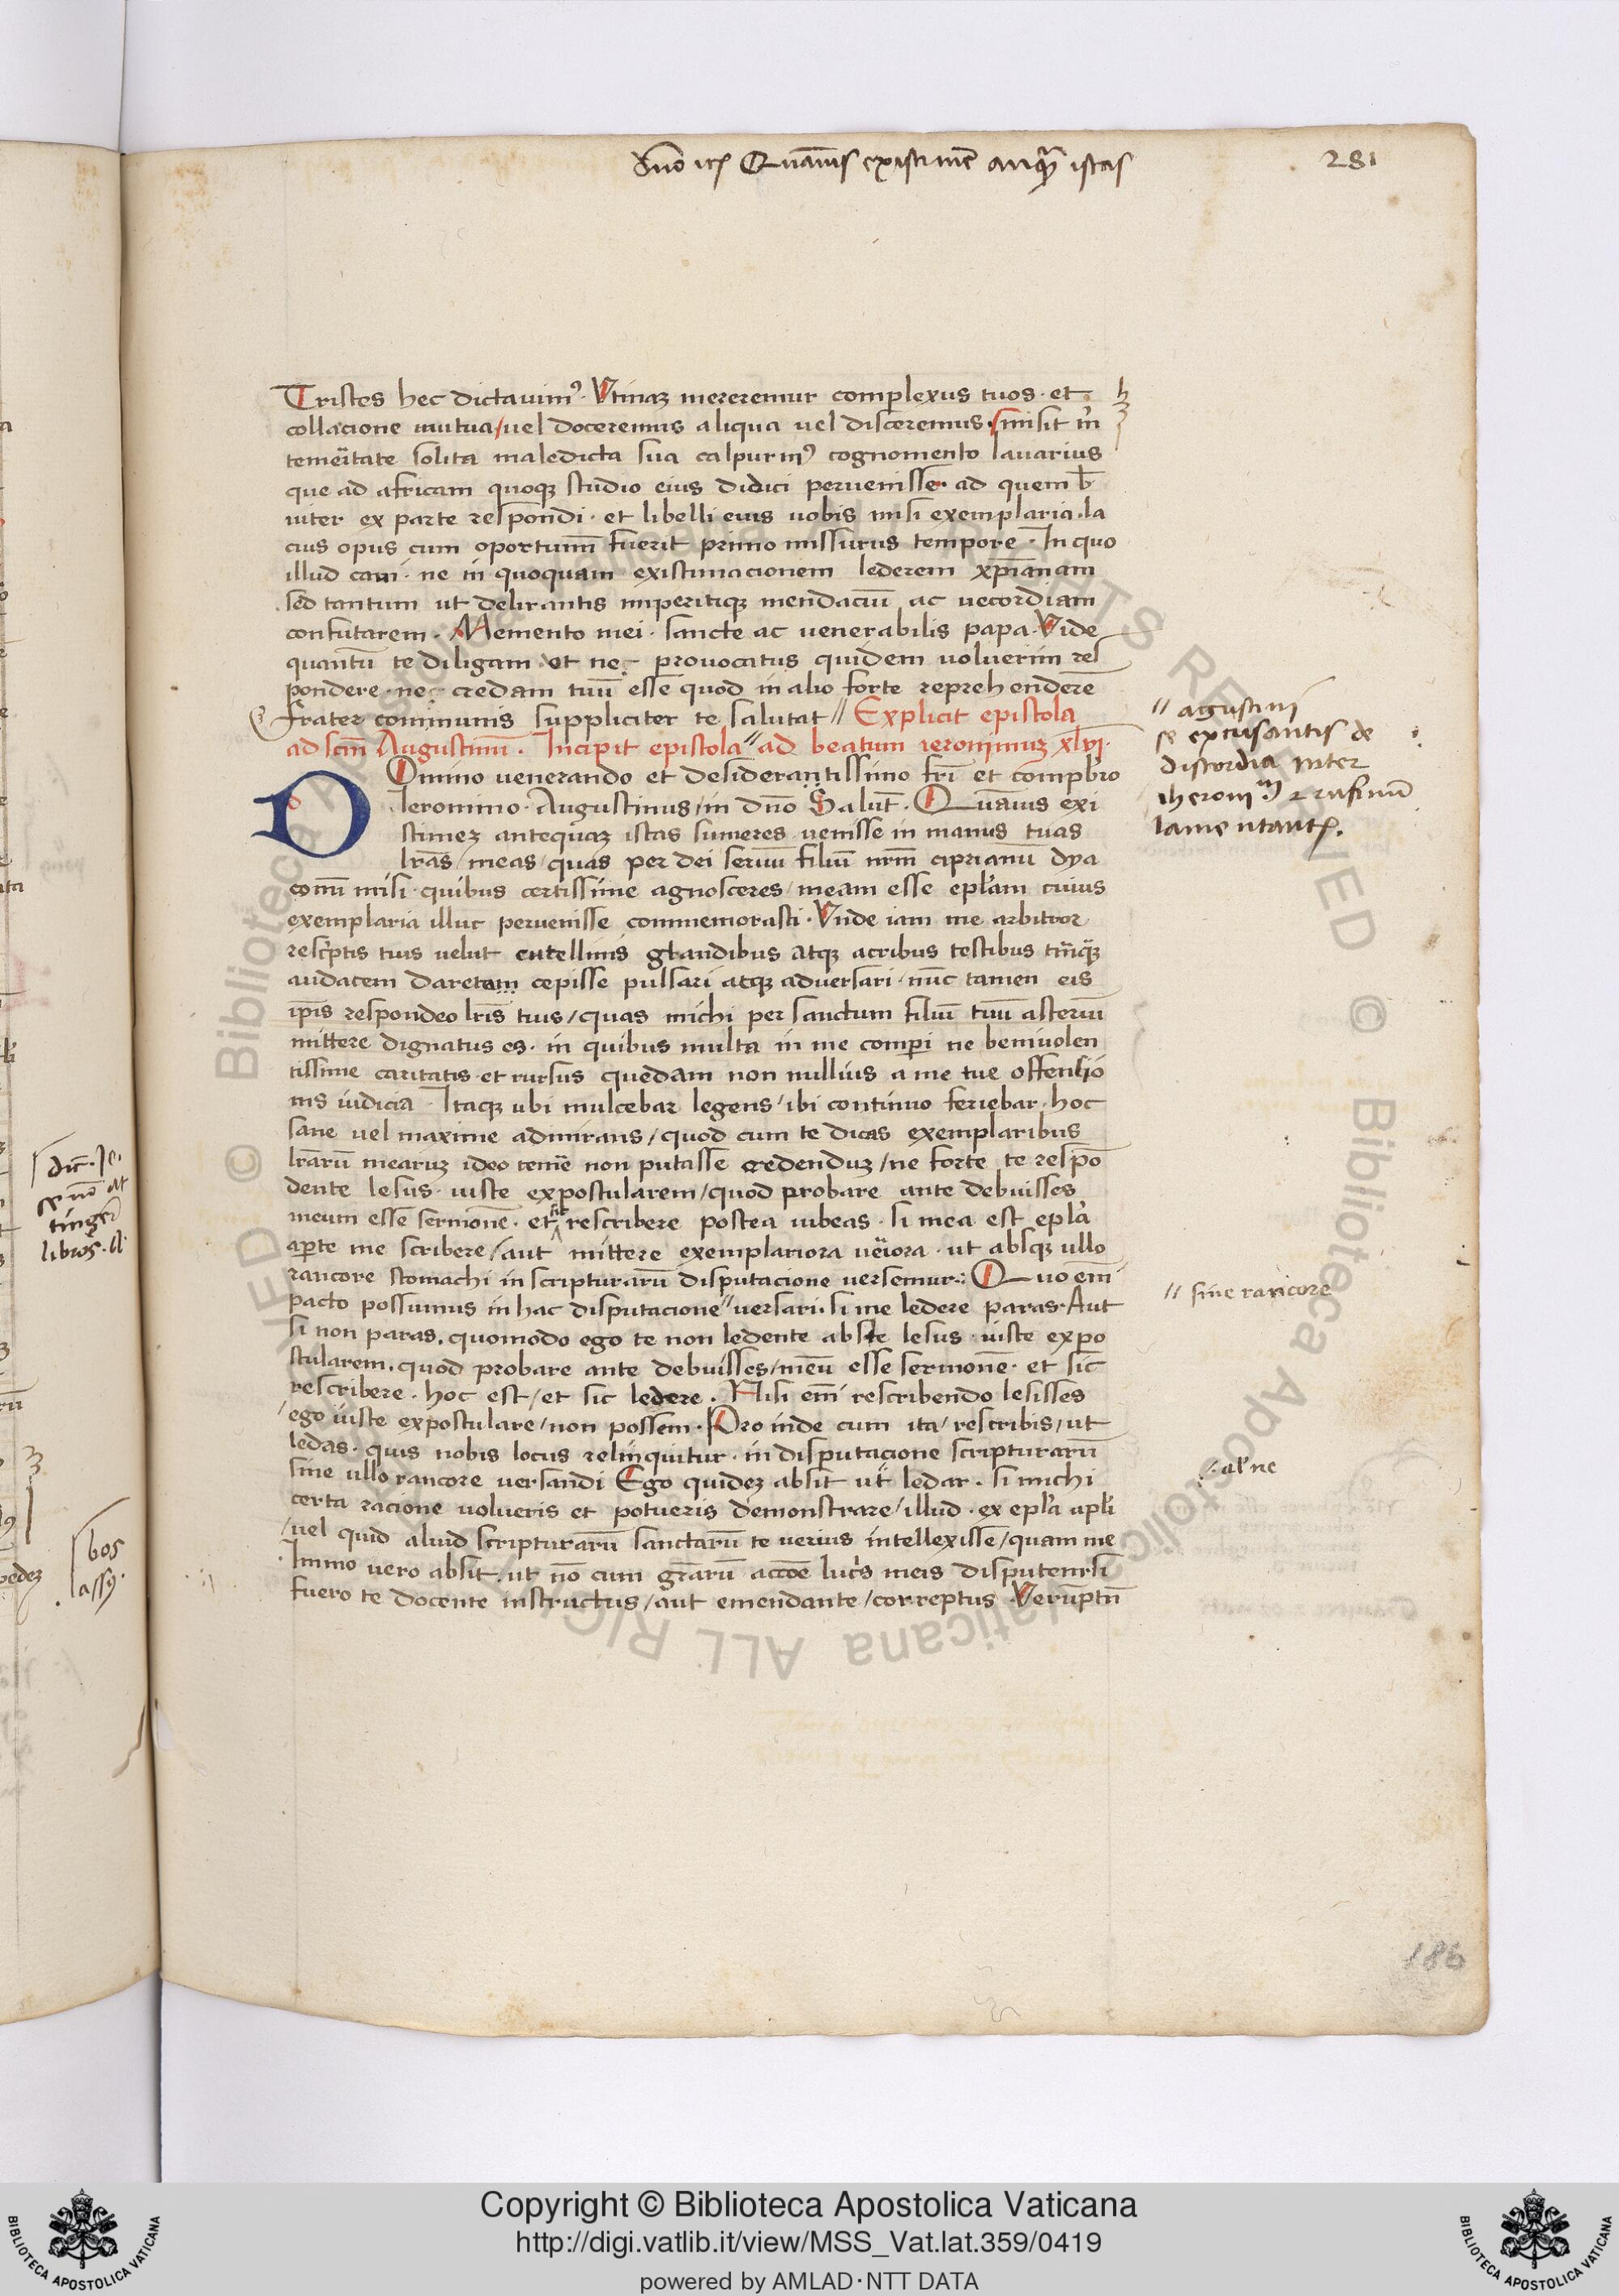 281
Tristes hec dictauimꝰ · Vtinaꝫ mereremur complexus tuos · et
collacione mutua / uel doceremus aliqua uel disceremus · misit m̄
temeritate solita maledicta sua calpurniꝰ cognomento lauarius
que ad africam quoqꝫ studio eius didici peruenisse · ad quem b̄
uiter ex parte respondi · et libelli eius uobis misi exemplaria · la
cius opus cum oportunū fuerit primo missurus tempore · In quo
illud caui · ne in quoquam existimacionem lederem xp̄ianam
sed tantum ut delirantis imperitiqꝫ mendaciū ac uecordiam
confutarem · Memento mei · sancte ac uenerabilis papa · Vide
quantū te diligam · ut nec prouocatus quidem uoluerim res
pondere · nec credam tuū esse quod in alio forte reprehenderē
frater communis suppliciter te salutat // Explicit epistola
ad scm̄ Augustinū · Incipit epistola // ad beatum ieronimuꝫ xlvi ·
Domino uenerando et desiderantissimo fr̄i et compb̄ro
Ieronimo · Augustinus / in dn̄o Salut̄ · Quāuis exi
stimeꝫ antequaꝫ istas sumeres uenisse in manus tuas
lr̄as / meas / quas per dei seruū filiū nrm̄ ciprianū dya
conū misi · quibus certissime agnosceres / meam esse epl̄am cuius
exemplaria illuc peruenisse commemorasti · Vnde iam me arbitror
rescriptis tuis uelut entellinis grandibus atqꝫ acribus cestibus
audacem daretam cepisse pulsari atqꝫ aduersari · nūc tamen eis
ip̄is respondeo lr̄is tuis / quas michi per sanctum filiū tuū asteriū
mittere dignatus es · in quibus multa in me comperi ne beniuolen
tissime caritatis · et rursus quedam non nullius a me tue offensio
nis iudicia · Itaqꝫ ubi mulcebar legens / ibi continuo feriebar · hoc
sane uel maxime admirans / quod cum te dicas exemplaribus
lr̄arū mearuꝫ ideo temē non putasse credenduꝫ / ne forte te respō
dente lesus · iuste expostularem / quod probare ante debuisses
meum esse sermonē · et sic rescribere postea iubeas · si mea est epl̄a
aperte me scribere / aut mittere exemplariora ueriora · ut absqꝫ ullo
rancore stomachi in scripturarū disputacione uersemur · Quo em̄
pacto possumus in hac disputacione // uersari · si me ledere paras · Aut
si non paras · quomodo ego te non ledente abste lesus · iuste expo
stularem · quod probare ante debuisses / meū esse sermonē · et sic
rescribere · hoc est / et sic ledere · Nisi em̄ rescribendo lesisses
ego iuste expostulare / non possem · Pro inde cum ita / rescribis / ut
ledas · quis nobis locus relinquitur · in disputacione scripturarū
sine ullo rancore uersandi Ego quideꝫ absit ut ledar · si michi
certa racione uolueris et potueris demonstrare / illud · ex epl̄a apl̄i
/ uel quid aliud scripturarū sanctarū te uerius intellexisse / quam me
Immo uero absit · ut nō cum gr̄arū accōe lucris meis disputem si
fuero te docente instructus / aut emendante / correptus · Verūptn̄
// agustini
se excusantis de
discordia inter
iheronimū ⁊ rufinū
// sine rancore
libros
bos
assy
186
Copyright © Biblioteca Apostolica Vaticana
http://digi.vatlib.it/view/MSS_Vat.lat.359/0419
powered by AMLAD·NTT DATA
BIBLIOTECA APOSTOLICA VATICANA
BIBLIOTECA APOSTOLICA VATICANA